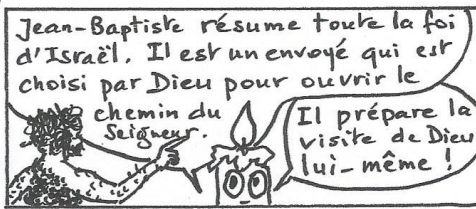 Jean-Baptiste résume toute la foi
d'Israël. Il est un envoyé qui est
choisi par Dieu pour ouvrir le
chemin du
Seigneur.
Il prépare la
visite de Dieu
lui-même !